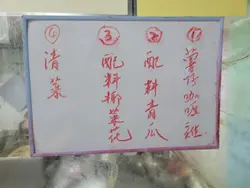 ① 薯仔咖喱雞
② 配料青瓜
③ 配料椰菜花
④ 清菜